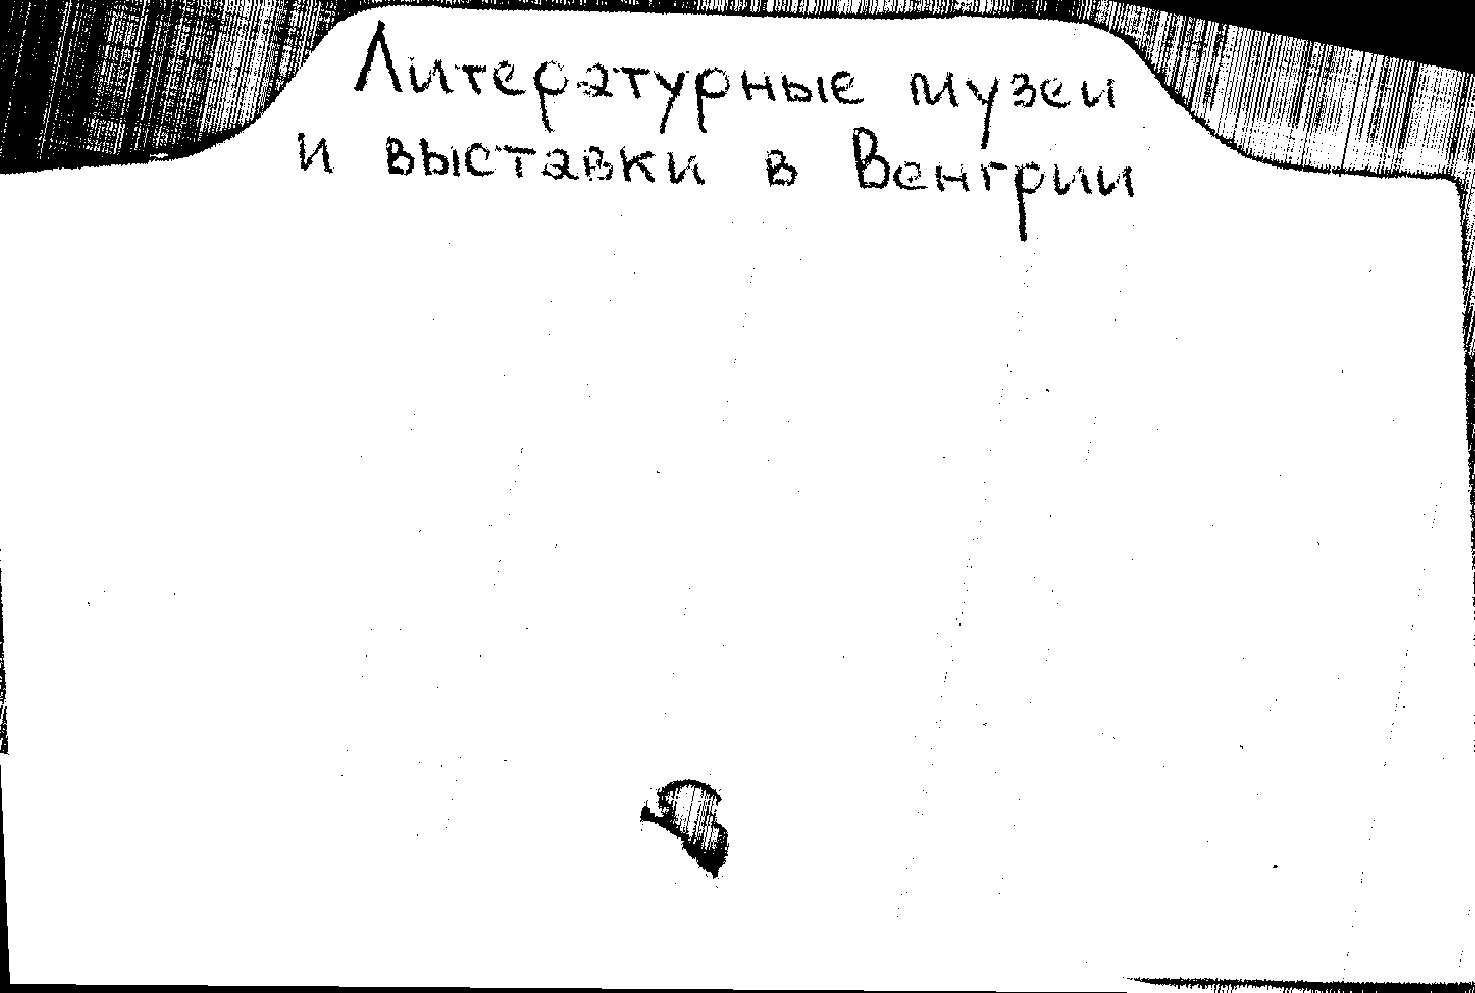 Литературные музеи
и выставки в Венгрии